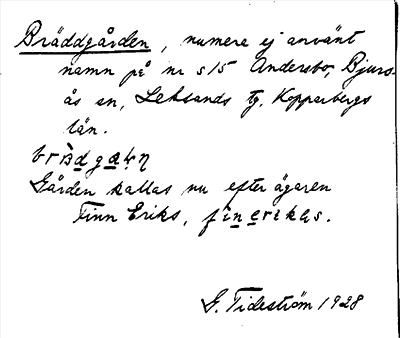 Bräddgården, numera ej använt
namn på nr 515 Andersbo, Bjurs-
ås sn, Leksands tg, Kopparbergs
län.
Gården kallas nu efter ägaren
Finn Eriks,
G. Tideström 1928